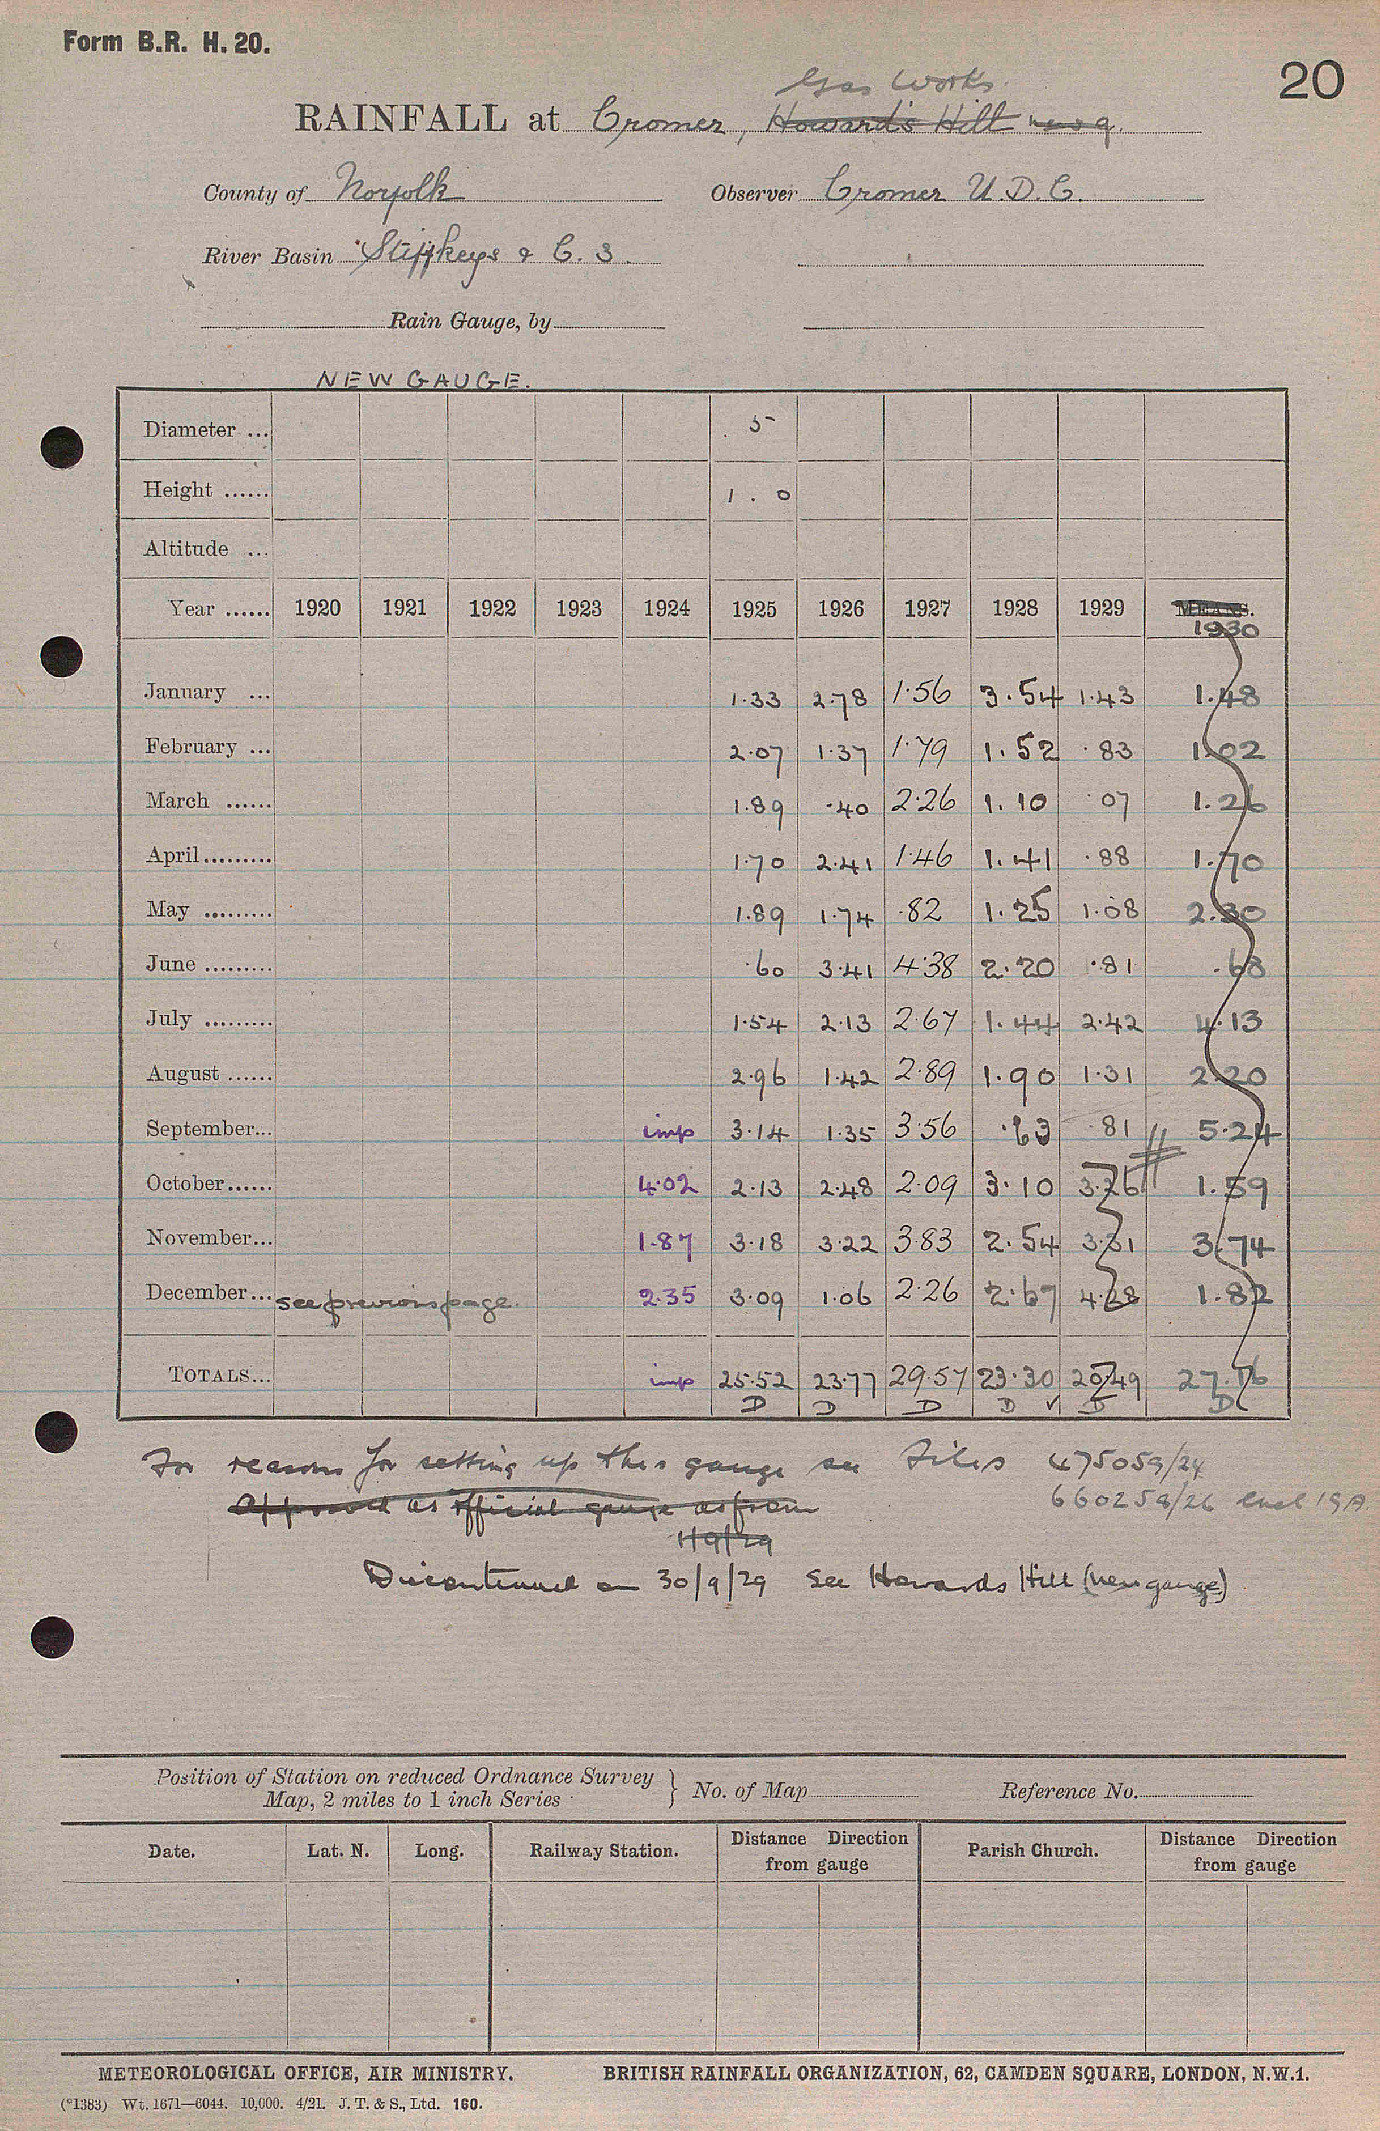 Form B.R. H. 20.
20
Gas Works.
RAINFALL at Cromer, Howard's Hill new g.
County of Norfolk Observer Cromer U.D.C.
River Basin Stiffkeys & C. 3.
Rain Gauge, by
NEW GAUGE.
Diameter ... 5
Height ...... 1.0
Altitude ...
Year ...... 1920 1921 1922 1923 1924 1925 1926 1927 1928 1929 MEANS.
1930
January ... 1.33 2.78 1.56 3.54 1.43 1.48
February ... 2.07 1.37 1.79 1.52 .83 1.02
March ...... 1.89 .40 2.26 1.10 .07 1.26
April ......... 1.70 2.41 1.46 1.41 .88 1.70
May ......... 1.89 1.74 .82 1.25 1.08 2.30
June ......... .60 3.41 4.38 2.20 .81 .68
July ......... 1.54 2.13 2.67 1.44 2.42 4.13
August ...... 2.96 1.42 2.89 1.90 1.31 2.20
September... imp 3.14 1.35 3.56 .63 .81 5.24
October...... 4.02 2.13 2.48 2.09 3.10 3.26 1.59
November... 1.87 3.18 3.22 3.83 2.54 3.31 3.74
December... see previous page 2.35 3.09 1.06 2.26 2.67 4.28 1.82
TOTALS... imp 25.52 23.77 29.57 23.30 20.49 27.16
D D D D ✓ D D
For reasons for setting up this gauge see Files 475059/24
Approved as official gauge as from 660259/26 encl 19A
1/9/29
Discontinued on 30/9/29 See Howards Hill (new gauge)
Position of Station on reduced Ordnance Survey
Map, 2 miles to 1 inch Series } No. of Map Reference No.
Date. Lat. N. Long. Railway Station. Distance Direction from gauge Parish Church. Distance Direction from gauge
METEOROLOGICAL OFFICE, AIR MINISTRY. BRITISH RAINFALL ORGANIZATION, 62, CAMDEN SQUARE, LONDON, N.W.1.
(*1383) Wt. 1671—6044. 10,000. 4/21. J. T. & S., Ltd. 160.